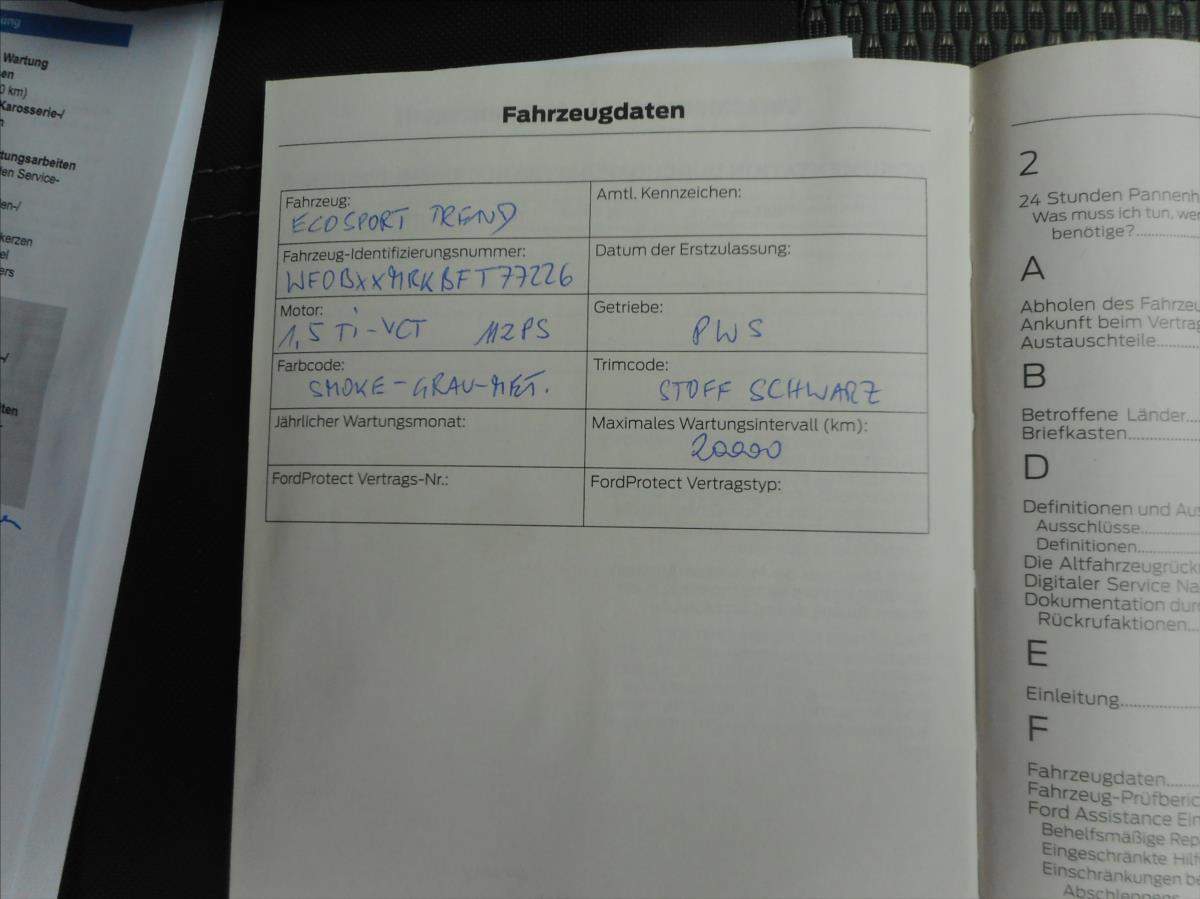 ung
Wartung
en
0 km)
Karosserie-/
n
tungsarbeiten
en Service-
en-/
kerzen
el
ers
/
ten
Fahrzeugdaten
Fahrzeug:
ECOSPORT TREND
Amtl. Kennzeichen:
Fahrzeug-Identifizierungsnummer:
WF0BXXMRKBFT77226
Datum der Erstzulassung:
Motor:
1,5 Ti-VCT 112PS
Getriebe:
PWS
Farbcode:
SMOKE-GRAU-MET.
Trimcode:
STOFF SCHWARZ
Jährlicher Wartungsmonat:
Maximales Wartungsintervall (km):
20000
FordProtect Vertrags-Nr.:
FordProtect Vertragstyp:
2
24 Stunden Pannenh
Was muss ich tun, we
benötige?
A
Abholen des Fahrzeu
Ankunft beim Vertrag
Austauschteile
B
Betroffene Länder
Briefkasten
D
Definitionen und Aus
Ausschlüsse
Definitionen
Die Altfahrzeugrück
Digitaler Service Na
Dokumentation dur
Rückrufaktionen
E
Einleitung
F
Fahrzeugdaten
Fahrzeug-Prüfberic
Ford Assistance Ein
Behelfsmäßige Rep
Eingeschränkte Hilf
Einschränkungen be
Abschleppens